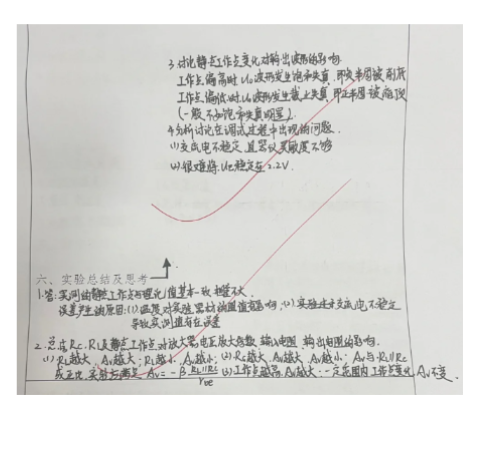 3.讨论静态工作点变化对输出波形的影响
工作点偏高时Uo波形发生饱和失真,即负半周被削底
工作点偏低时Uo波形发生截止失真,即正半周被缩顶
(一般不如饱和失真明显).
4.分析讨论在调试过程中出现的问题.
(1)交出电不稳定,且器仪灵敏度不够
(2)很难将UE稳定在2.2V.
六、实验总结及思考
1.答:实测的静态工作点与理论值基本一致相差不大.
误差产生的原因:(1)温度对实验器材的阻值有影响;(2)实验过中交流电不稳定
导致实测值存在误差
2.总结Rc.RL及静态工作点对放大器电压放大倍数、输入电阻、输出电阻的影响.
(1)RL越大,Av越大;RL越小,Av越小;(2)Rc越大,Av越大,Av越小;Av与RL//Rc
成正比,实验方满足Av=-β RL//Rc/rbe (3)工作点越高,Av越大;一定范围内工作点变化,Av不变.